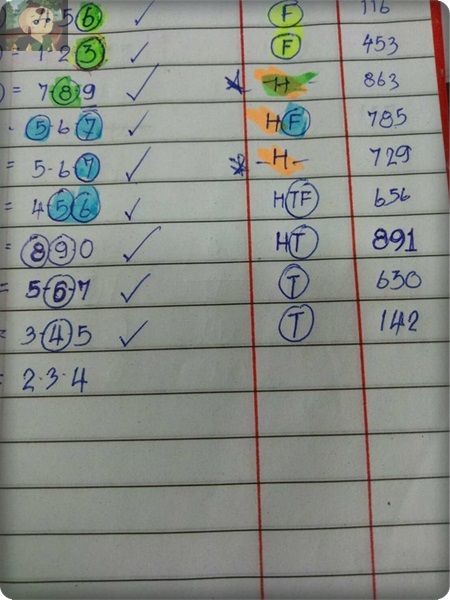 5 6 ✓ F 116
= 1 2 3 ✓ F 453
= 7-8-9 ✓ H 863
5-6 7 ✓ HF 785
= 5-6-7 ✓ -H- 729
= 4 5 6 ✓ HTF 656
= 8 9 0 ✓ HT 891
= 5-6-7 ✓ T 630
= 3-4-5 ✓ T 142
= 2-3-4